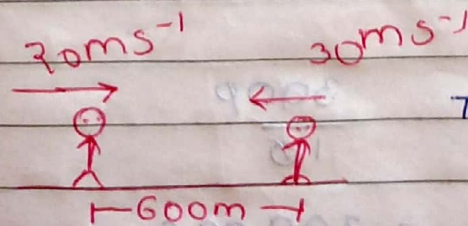 20ms⁻¹
30ms⁻¹
600m